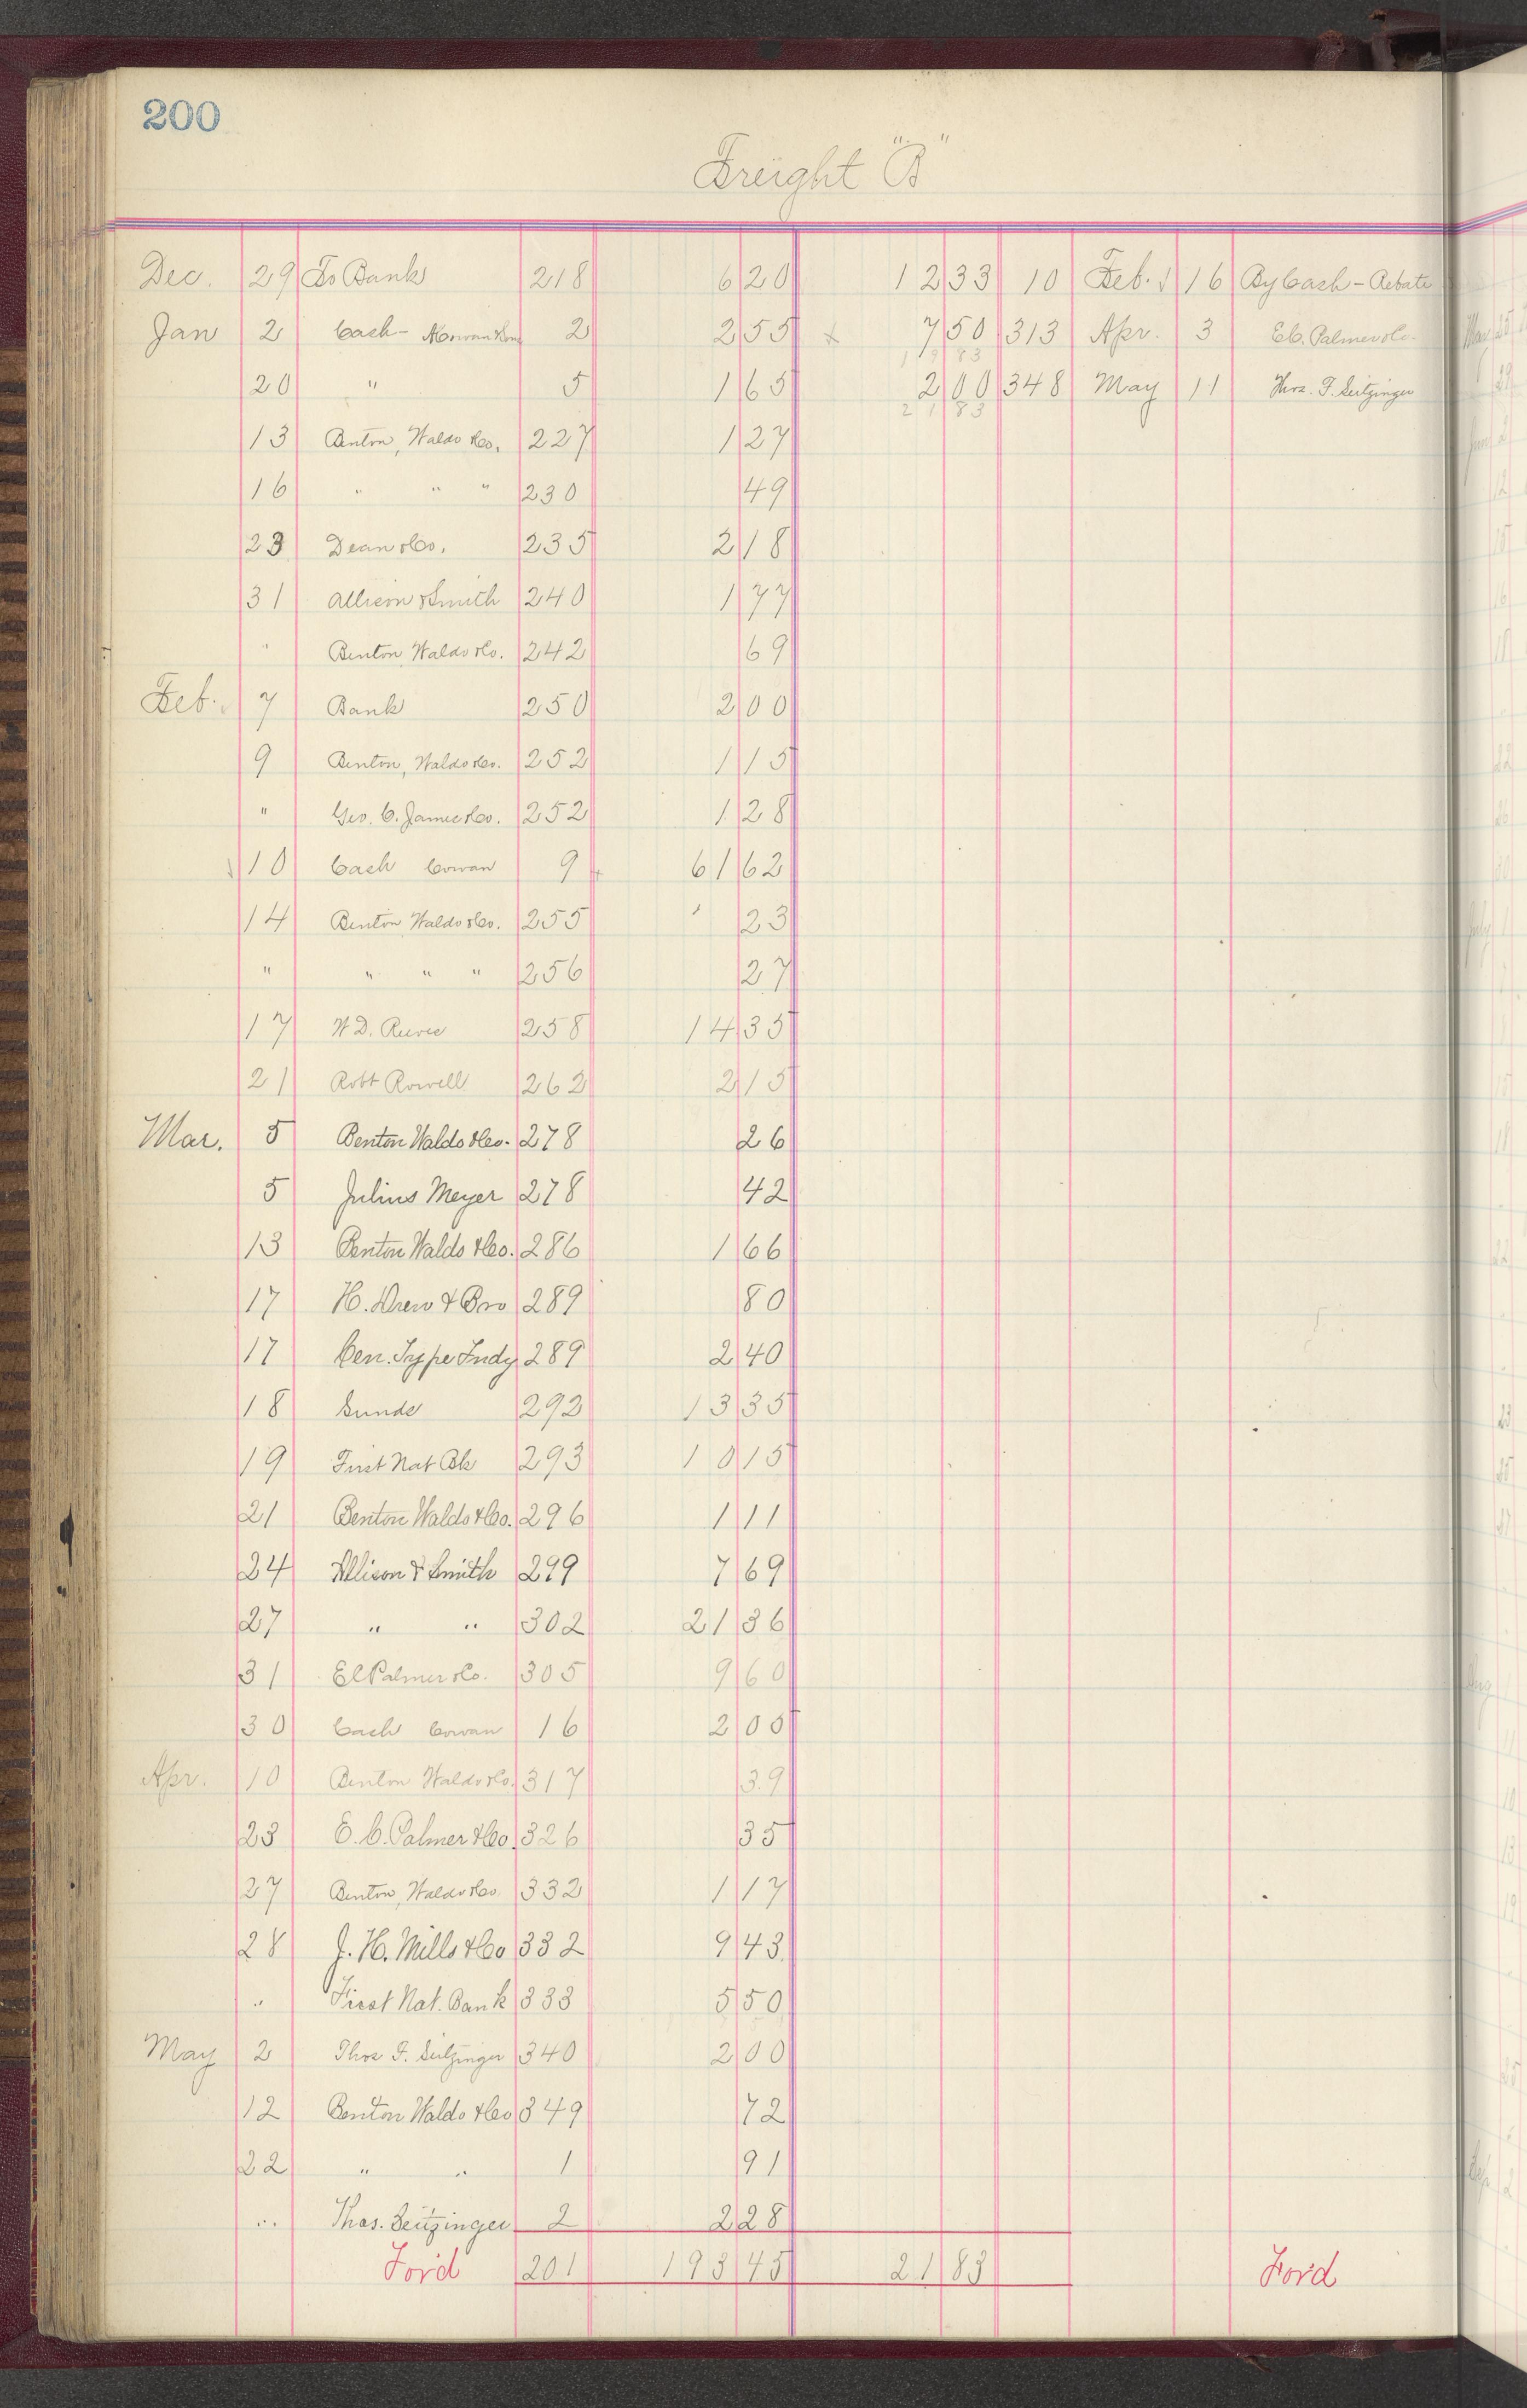 200
Freight "B"
Dec. 29 To Bank 218 6 20 12 33 10 Feb. 16 By Cash - Rebate
Jan 2 Cash - 2 2 55 7 50 313 Apr. 3 E.C. Palmer & Co.
19 83
20 " 5 1 65 2 00 348 May 11 Thos. F. Seitzinger
21 83
13 Benton, Waldo & Co. 227 1 27
16 " " " 230 49
23 Dean & Co. 235 2 18
31 Allison & Smith 240 1 77
" Benton Waldo & Co. 242 69
Feb. 7 Bank 250 2 00
9 Benton, Waldo & Co. 252 1 15
" Geo. C. James & Co. 252 1 28
10 Cash Cowan 9 61 62
14 Benton Waldo & Co. 255 23
" " " " 256 27
17 W.D. Reeves 258 14 35
21 Robt Rowell 262 2 15
Mar. 5 Benton Waldo & Co. 278 26
5 Julius Meyer 278 42
13 Benton Waldo & Co. 286 1 66
17 H. Drew & Bro 289 80
17 Cen. Type Fndy 289 2 40
18 Sunds 292 13 35
19 First Nat Bk 293 10 15
21 Benton Waldo & Co. 296 1 11
24 Allison & Smith 299 7 69
27 " " 302 21 36
31 E C Palmer & Co. 305 9 60
30 Cash Cowan 16 2 05
Apr. 10 Benton Waldo & Co. 317 39
23 E. C. Palmer & Co. 326 35
27 Benton, Waldo & Co 332 1 17
28 J. H. Mills & Co 332 9 43
" First Nat. Bank 333 5 50
May 2 Thos F. Seitzinger 340 2 00
12 Benton Waldo & Co 349 72
22 " " 1 91
" Thos. Seitzinger 2 2 28
For'd 201 193 45 21 83 For'd